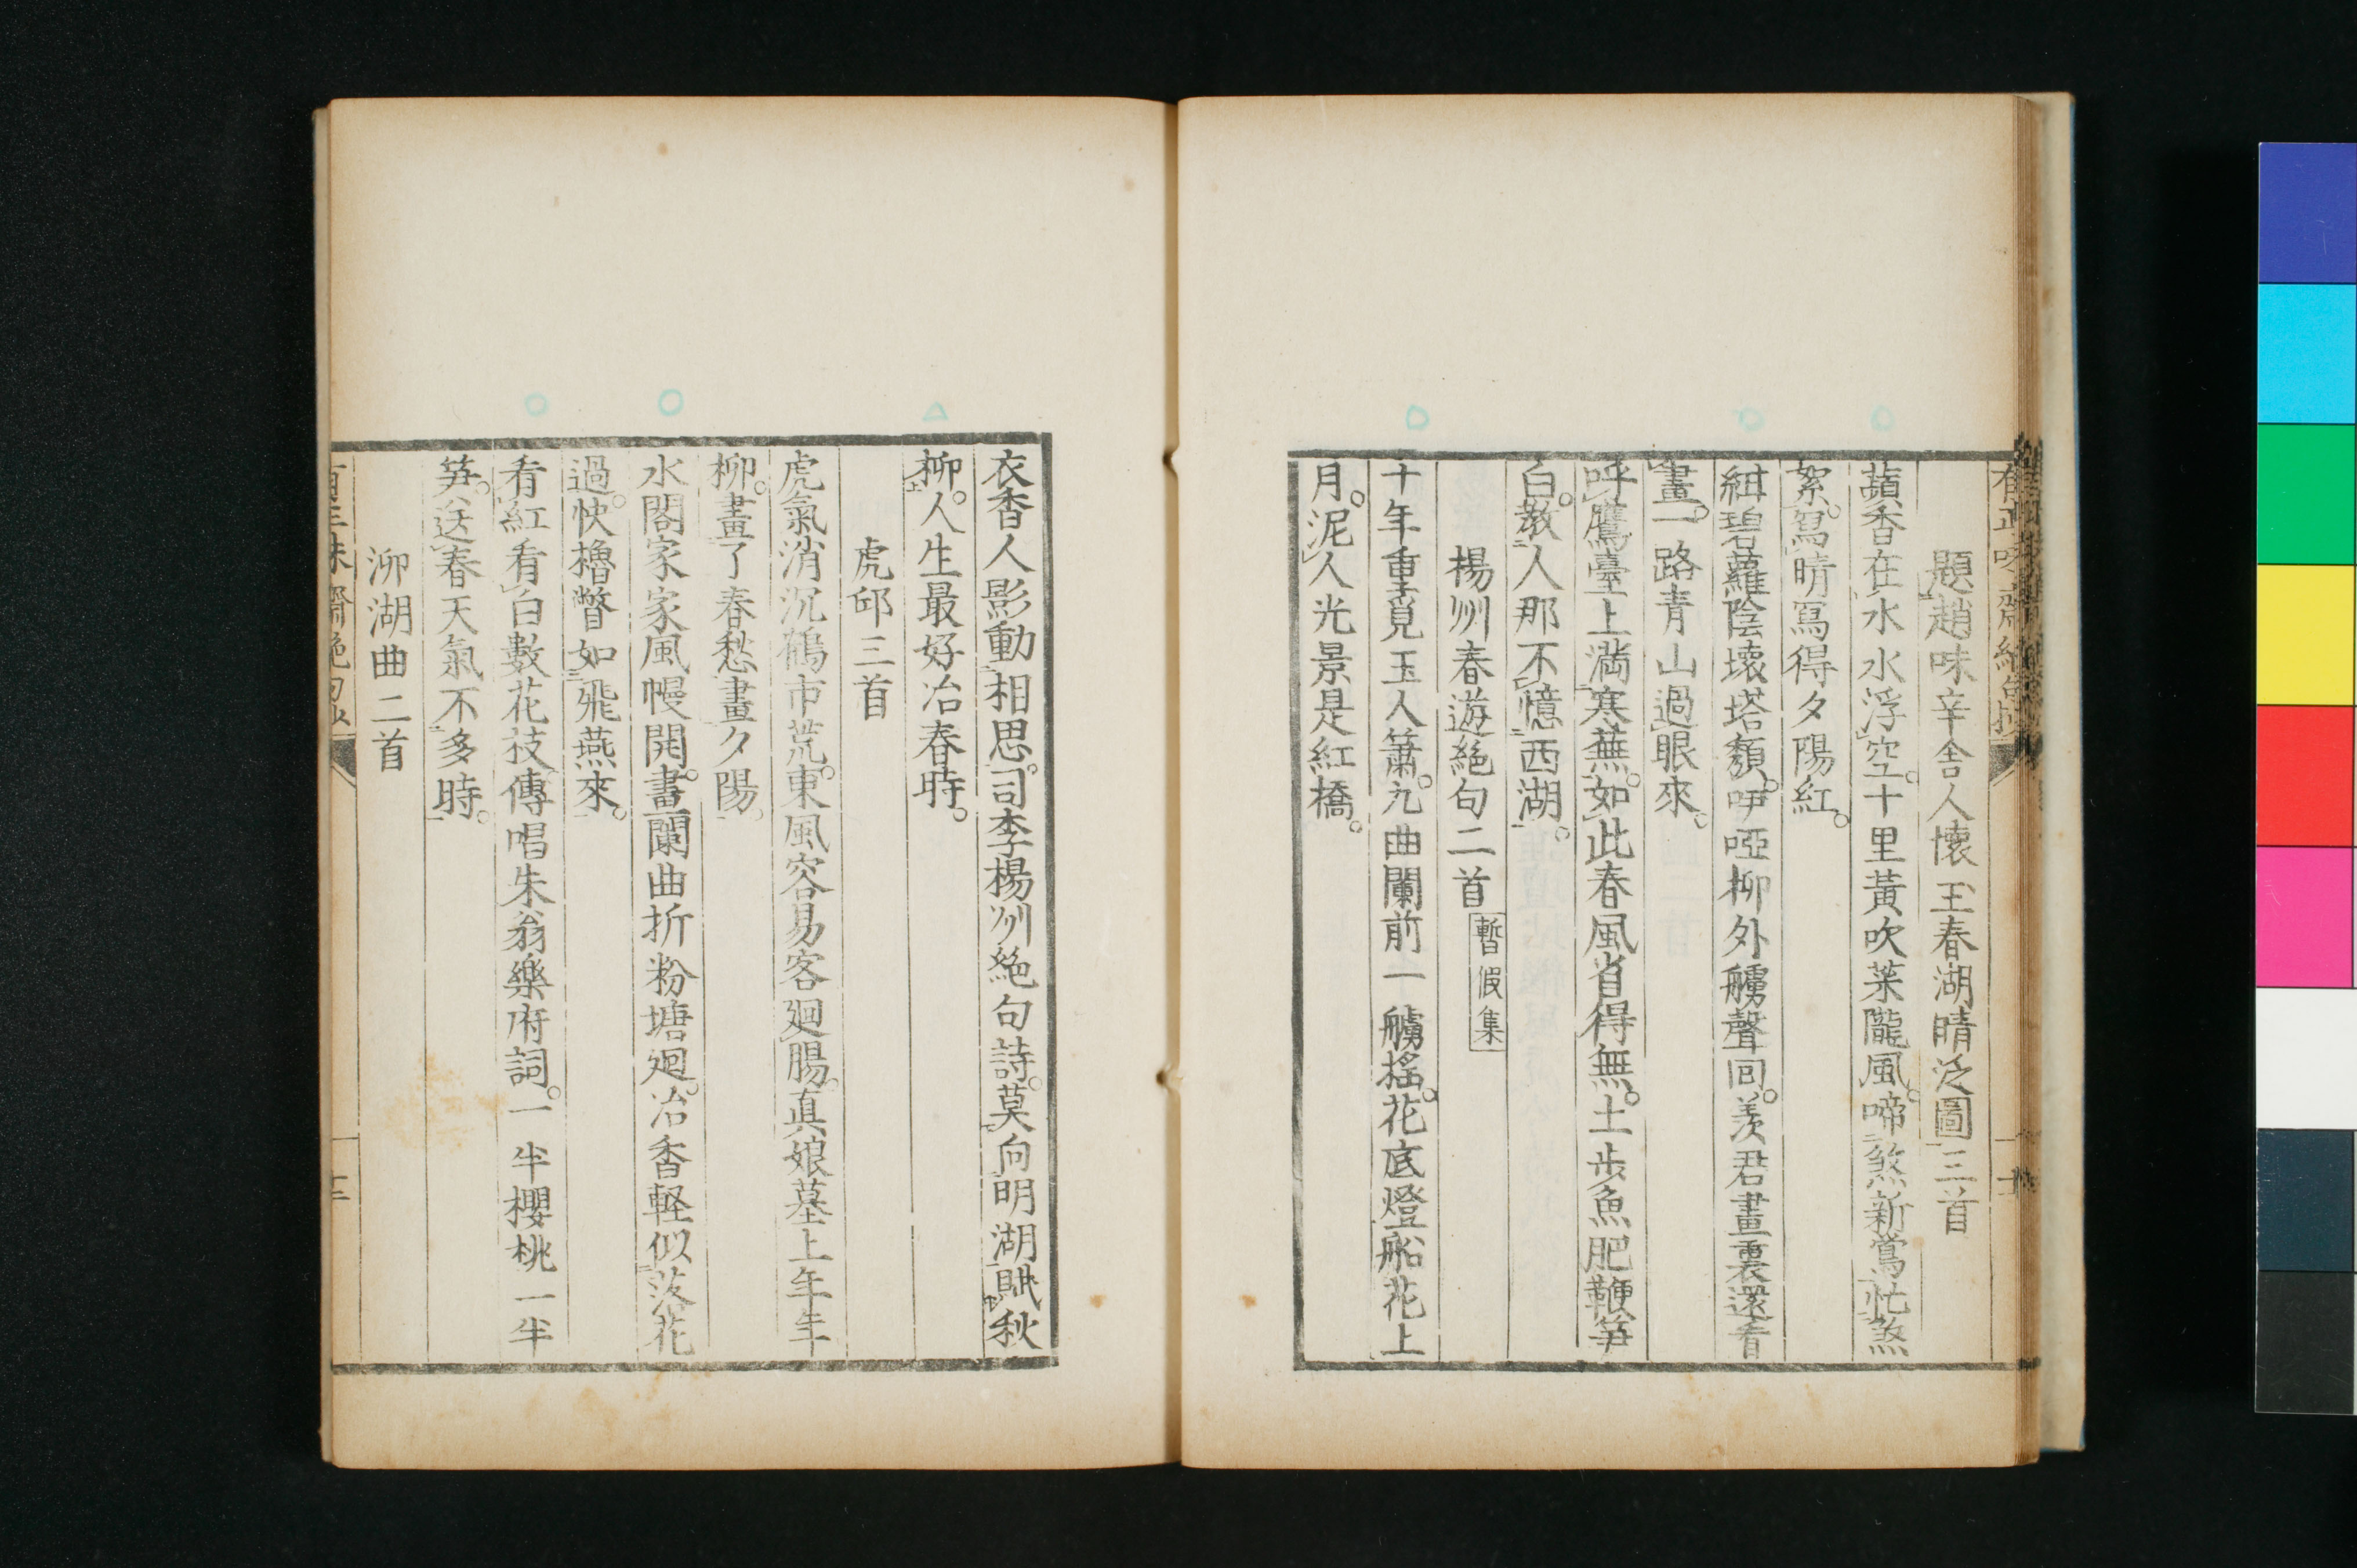 題趙味辛舍人懷玉春湖晴泛圖三首
蘋香在水水浮空。十里黃吹菜隴風。啼煞新鶯忙煞
絮。冩晴冩得夕陽紅。
紺碧蘿陰壞塔頽。咿啞柳外艣聲回。羨君畫裏還看
畫。一路青山過眼來。
呼鷹臺上滿寒蕪。如此春風省得無。土步魚肥鞭笋
白。教人那不憶西湖。
楊州春遊絕句二首 暫假集
十年重覓玉人簫。九曲闌前一艣搖。花底燈船花上
月。泥人光景是紅橋。
衣香人影動相思。司李楊州絕句詩。莫向明湖賦秋
柳。人生最好冶春時。
虎邱三首
虎氣消沉鶴市荒。東風容易客廻腸。真娘墓上年年
柳。畫了春愁畫夕陽。
水閣家家風幔開。畫闌曲折粉塘廻。冶香軽似落花
過。快櫓瞥如飛燕來。
看紅看白數花枝。傳唱朱翁樂府詞。一半櫻桃一半
笋。送春天氣不多時。
泖湖曲二首